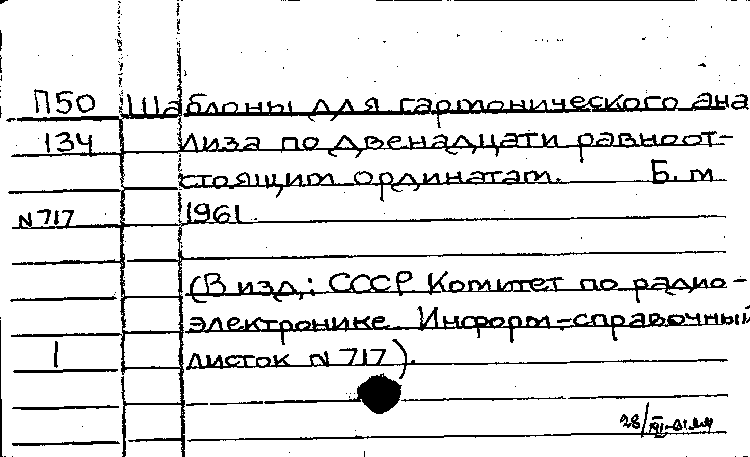 П50 Шаблоны для гармонического ана
134 лиза по двенадцати равноот-
стоящим ординатам. Б. м
N 717 1961.
(В изд.: СССР Комитет по радио-
электронике. Информ-справочный
1 листок N 717).
28/